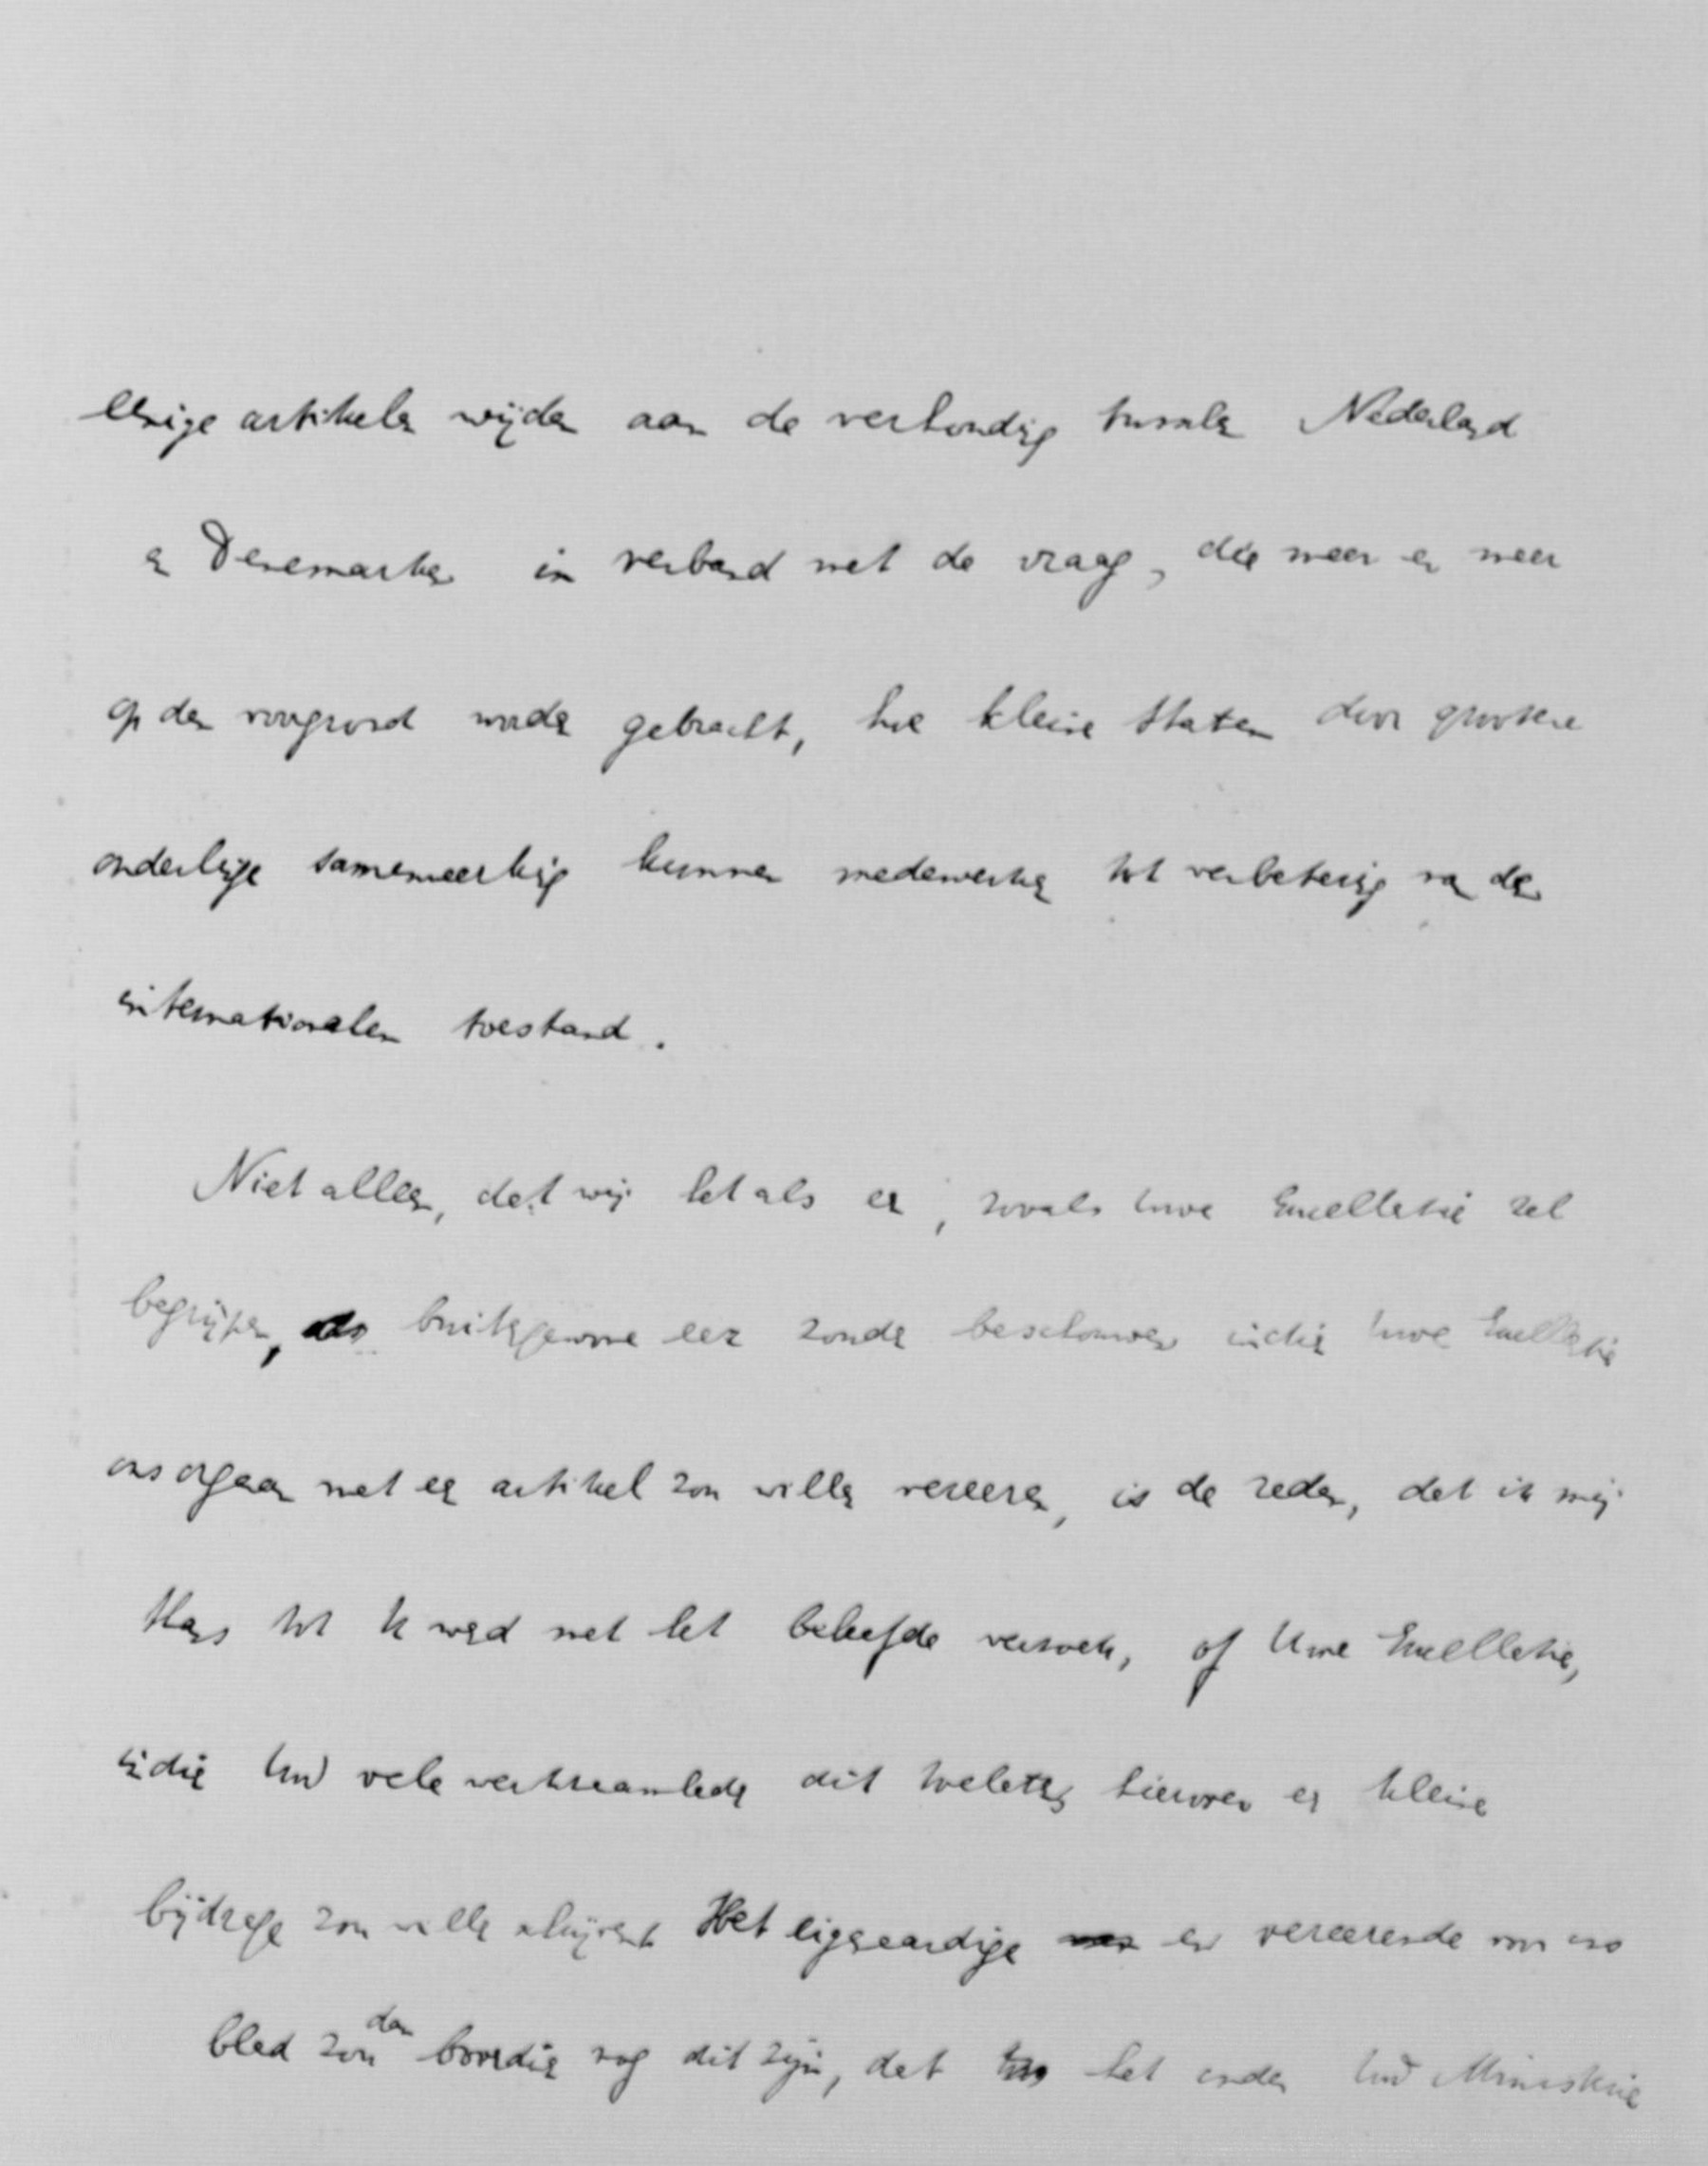 eenige artikelen wijden aan de verhouding tusschen Nederland
en Denemarken in verband met de vraag, die meer en meer
op den voorgrond wordt gebracht, hoe kleine Staten door grootere
onderlinge samenwerking kunnen medewerken tot verbetering van den
internationalen toestand.
Niet alleen, dat wij het als een, zooals Uwe Excellentie zal
begrijpen, buitengewone eer zouden beschouwen indien Uwe Excellentie
ons orgaan met een artikel zou willen vereeren, is de reden, dat ik mij
thans tot U wend met het beleefde verzoek, of Uwe Excellentie,
indien Uw vele werkzaamheden dit toelaten hierover een kleine
bijdrage zou willen schrijven. Het eigenaardige en vereerende voor ons
blad zou dan bovendien nog dit zijn, dat het onder Uw Ministerie